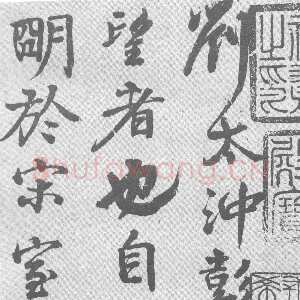 劉太沖彭
望者也自
明於宋室
shufawang.ck